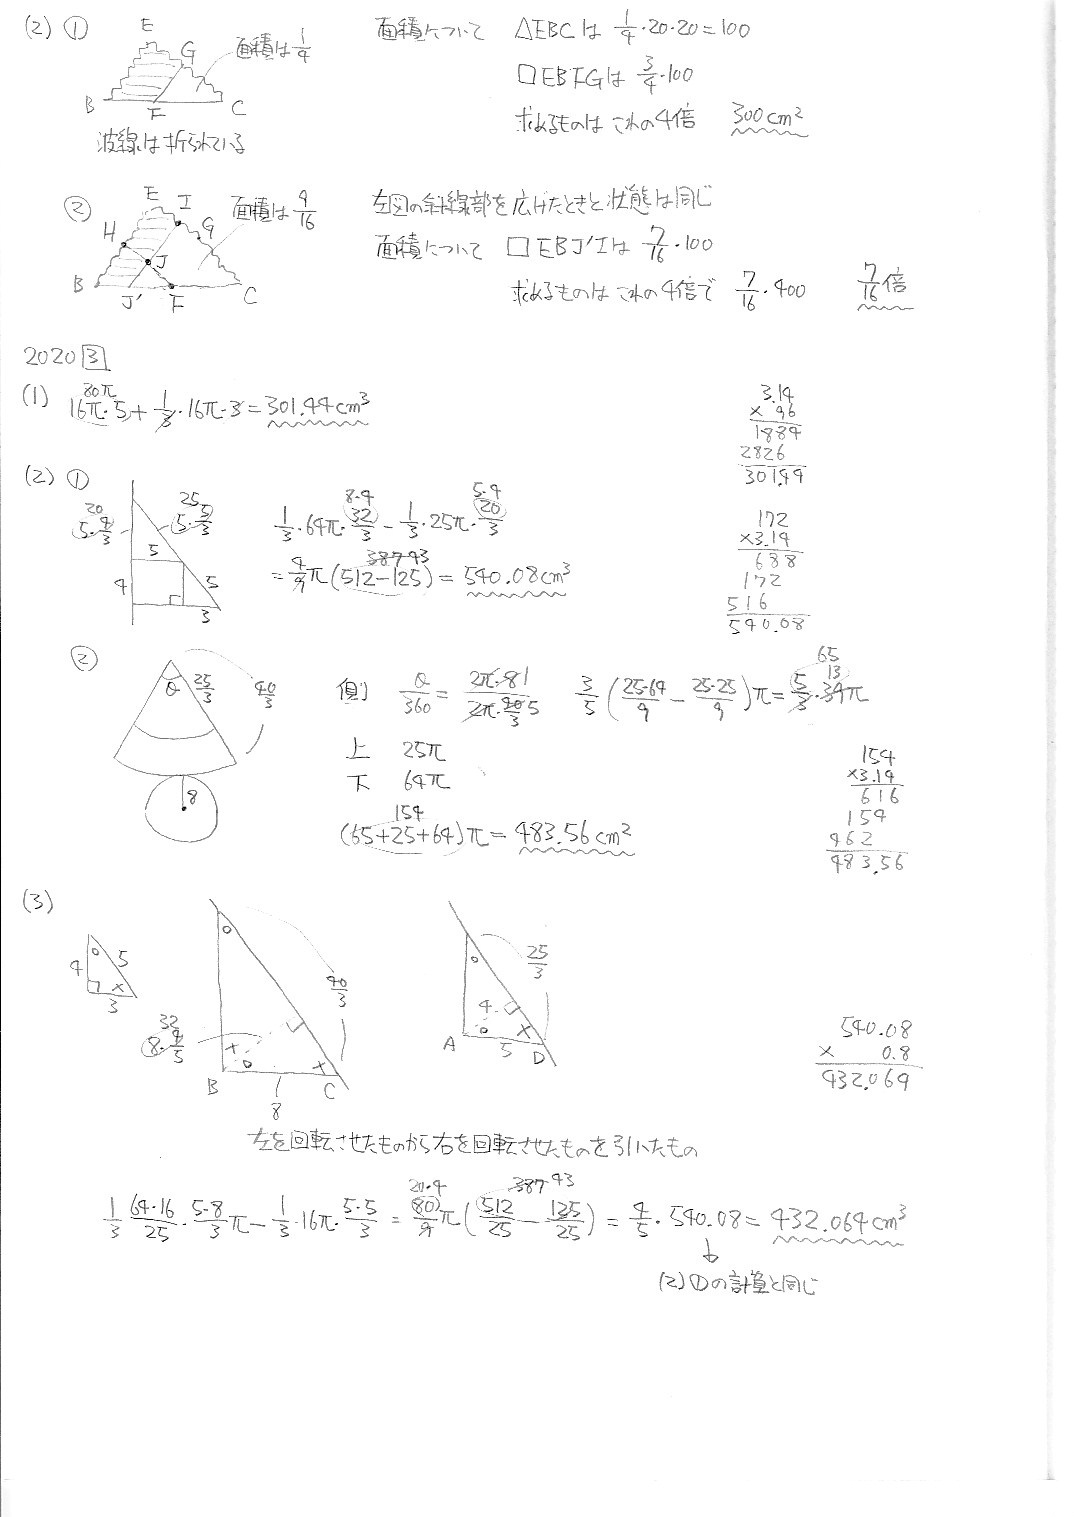 (2) ①
E
G
面積は 1/4
B F C
波線は折られている
面積について △EBCは 1/4・20・20=100
□EBFGは 3/4・100
求めるものはこれの4倍 300cm²
②
E I
G
H
J
B J' F C
面積は 9/16
左図の斜線部を広げたときと状態は同じ
面積について □EBJ'Iは 7/16・100
求めるものはこれの4倍で 7/16・400 7/16倍
2020 3
(1) 80π
16π・5+1/3・16π・3=301.44cm³
3.14
× 96
1884
2826
301.44
(2) ①
20
5・4/3
25
5・5/3
5
4
5
3
8・4 5・4
1/3・64π・32/3-1/3・25π・20/3
387 43
=4/9π(512-125)=540.08cm³
172
×3.14
688
172
516
540.08
②
θ 25/3 40/3
8
側 θ/360=2π・8/2π・40/3 5
65
13
3/5(25・64/9-25・25/9)π=5/3・39π
上 25π
下 64π
154
(65+25+64)π=483.56cm²
154
×3.14
616
154
462
483.56
(3)
4 5
3
32
8・4/5
40/3
B C
8
25/3
4
A 5 D
540.08
× 0.8
432.064
左を回転させたものから右を回転させたものを引いたもの
20・4 387 43
1/3・64・16/25・5・8/3π-1/3・16π・5・5/3=80/9π(512/25-125/25)=4/5・540.08=432.064cm³
↓
(2)①の計算と同じ